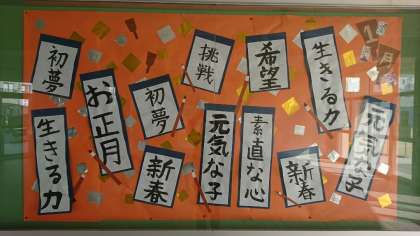 初夢
お正月
初夢
挑戦
希望
生きる力
生きる力
新春
元気な子
素直な心
新春
元気な子